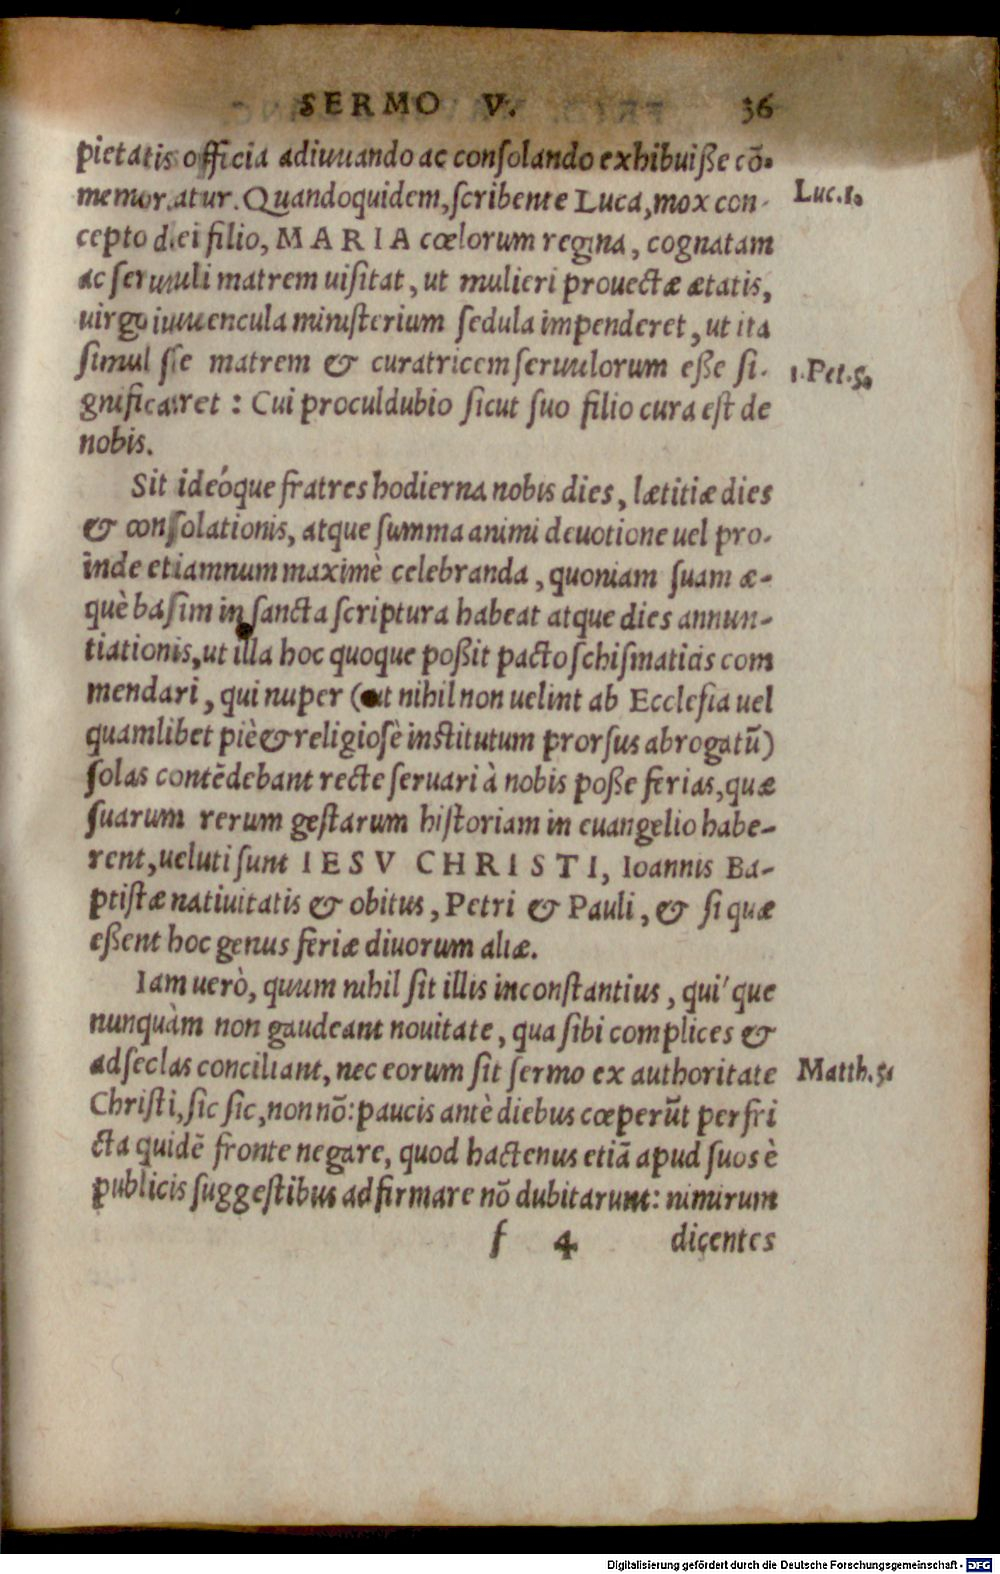 SERMO V. 36
pietatis officia adiuuando ac consolando exhibuiße cō-
memoratur. Quandoquidem, scribente Luca, mox con-
Luc.1.
cepto dei filio, MARIA cœlorum regina, cognatam
ac seruuli matrem uisitat, ut mulieri prouectæ ætatis,
uirgo iuuencula ministerium sedula impenderet, ut ita
simul se matrem & curatricem seruulorum eße si-
1.Pet.5.
gnificaret : Cui proculdubio sicut suo filio cura est de
nobis.
Sit ideóque fratres hodierna nobis dies, lætitiæ dies
& consolationis, atque summa animi deuotione uel pro-
inde etiamnum maximè celebranda, quoniam suam æ-
què basim in sancta scriptura habeat atque dies annun-
tiationis, ut illa hoc quoque poßit pacto schismaticis com
mendari, qui nuper (ut nihil non uelint ab Ecclesia uel
quamlibet piè & religiosè institutum prorsus abrogatū)
solas contēdebant recte seruari à nobis poße ferias, quæ
suarum rerum gestarum historiam in euangelio habe-
rent, ueluti sunt IESV CHRISTI, Ioannis Ba-
ptistæ natiuitatis & obitus, Petri & Pauli, & si quæ
eßent hoc genus feriæ diuorum aliæ.
Iam uerò, quum nihil sit illis inconstantius, qui'que
nunquàm non gaudeant nouitate, qua sibi complices &
adseclas conciliant, nec eorum sit sermo ex authoritate
Matth.5.
Christi, sic sic, non nō: paucis antè diebus cœperūt perfri
cta quidē fronte negare, quod hactenus etiā apud suos è
publicis suggestibus adfirmare nō dubitarunt: nimirum
f 4 dicentes
Digitalisierung gefördert durch die Deutsche Forschungsgemeinschaft - DFG